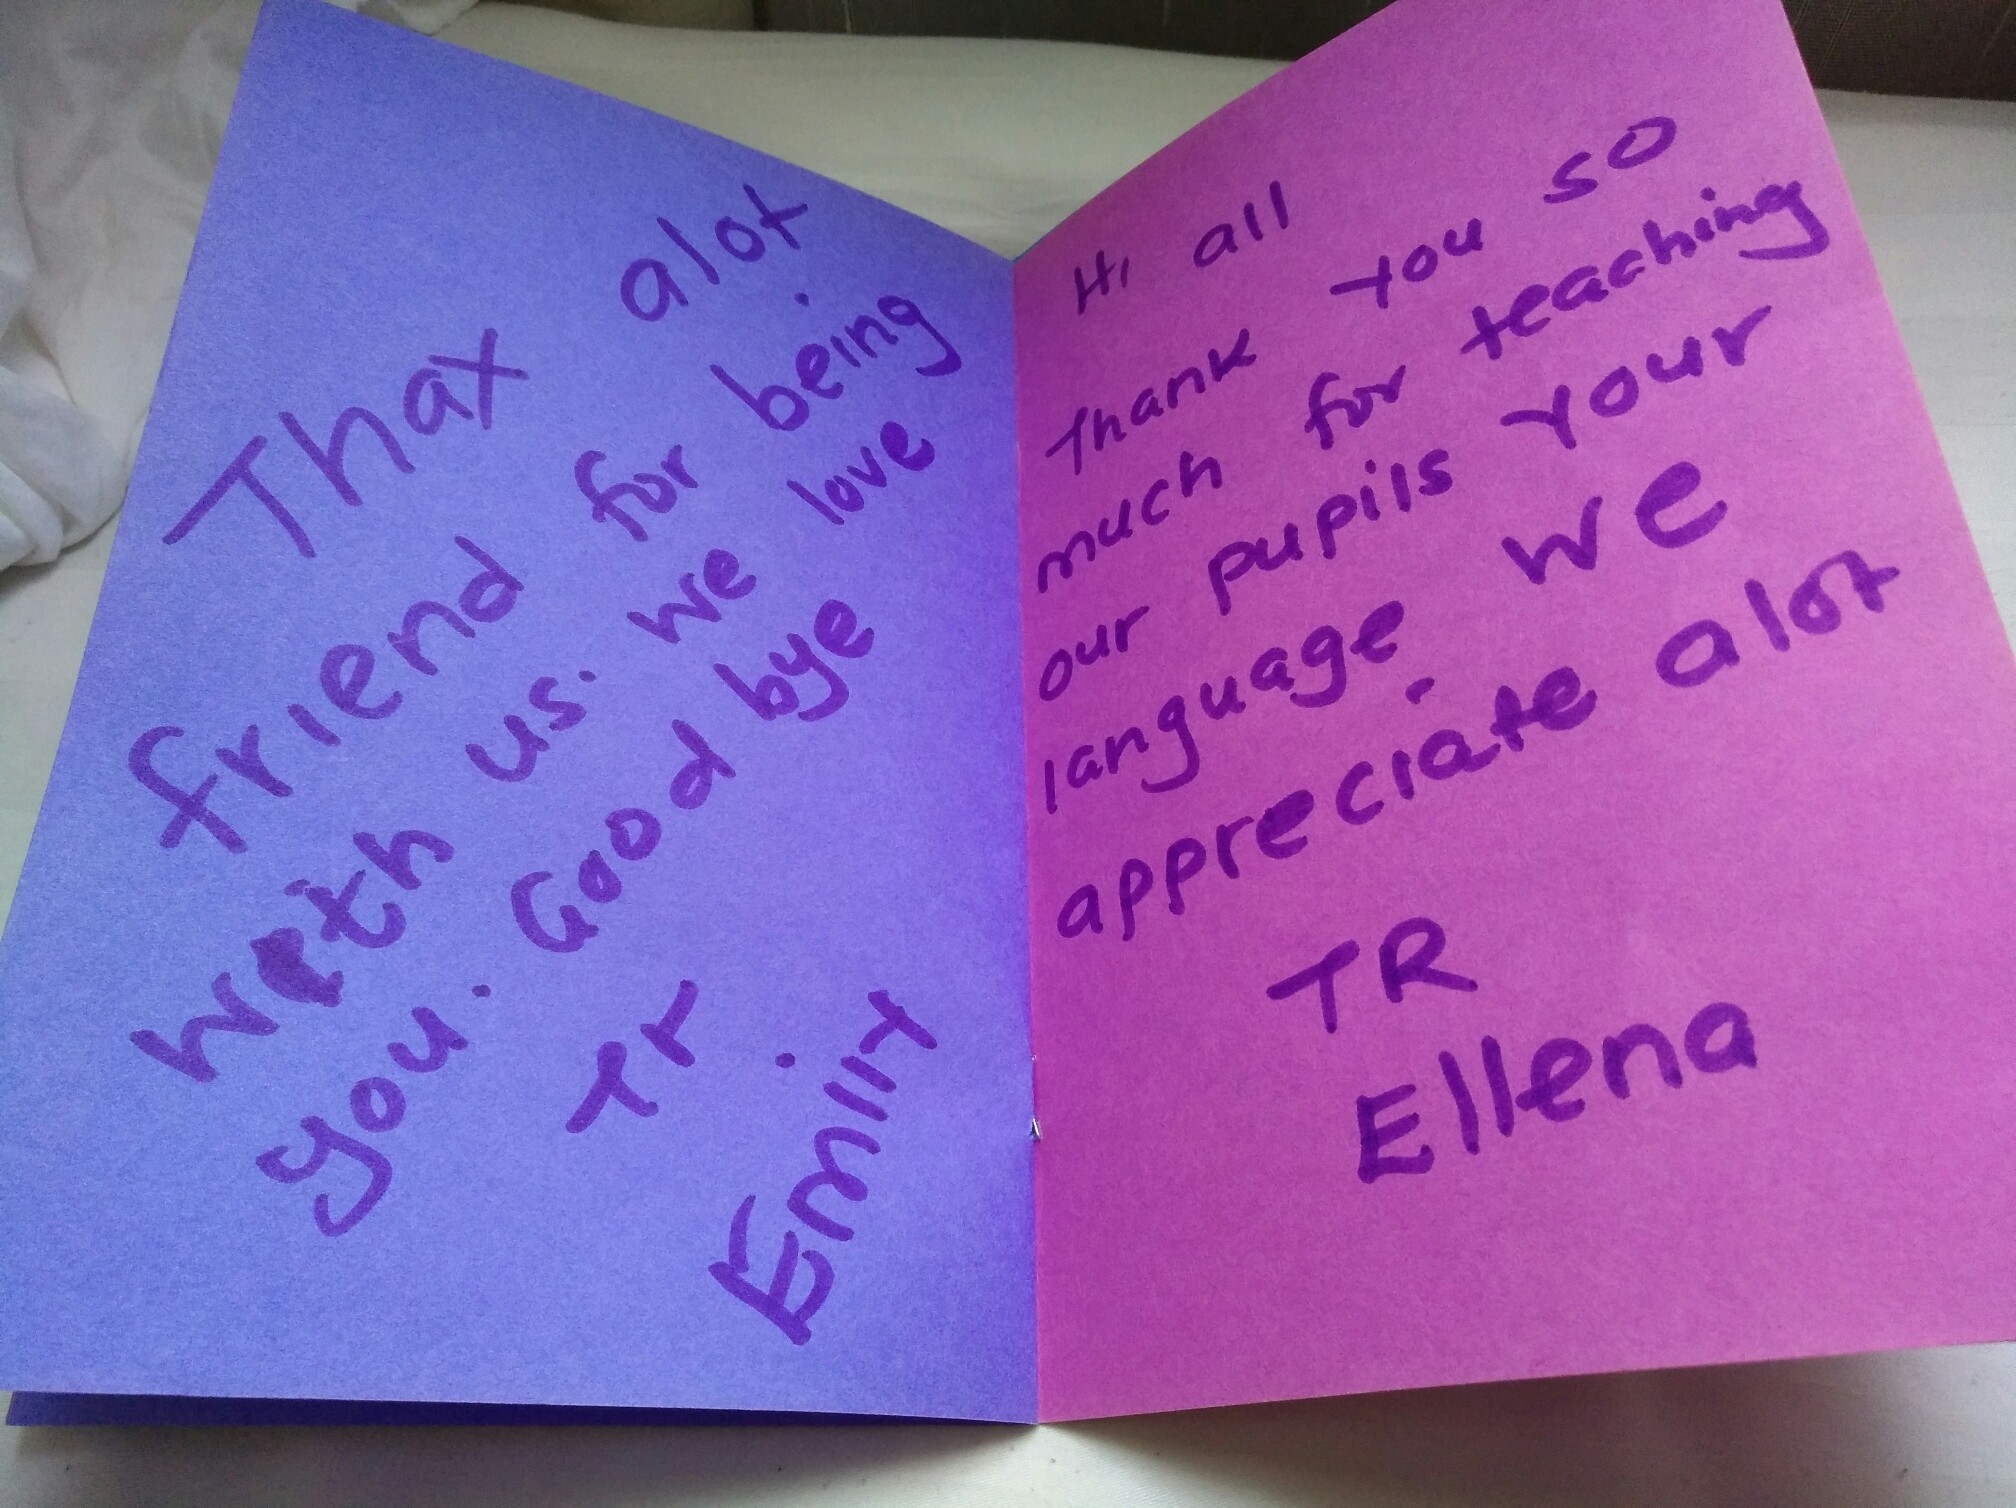 Thax alot
friend for being
with us. We love
you. Good bye
Tr.
Emily
Hi all
Thank you so
much for teaching
our pupils your
language. We
appreciate alot
TR
Ellena